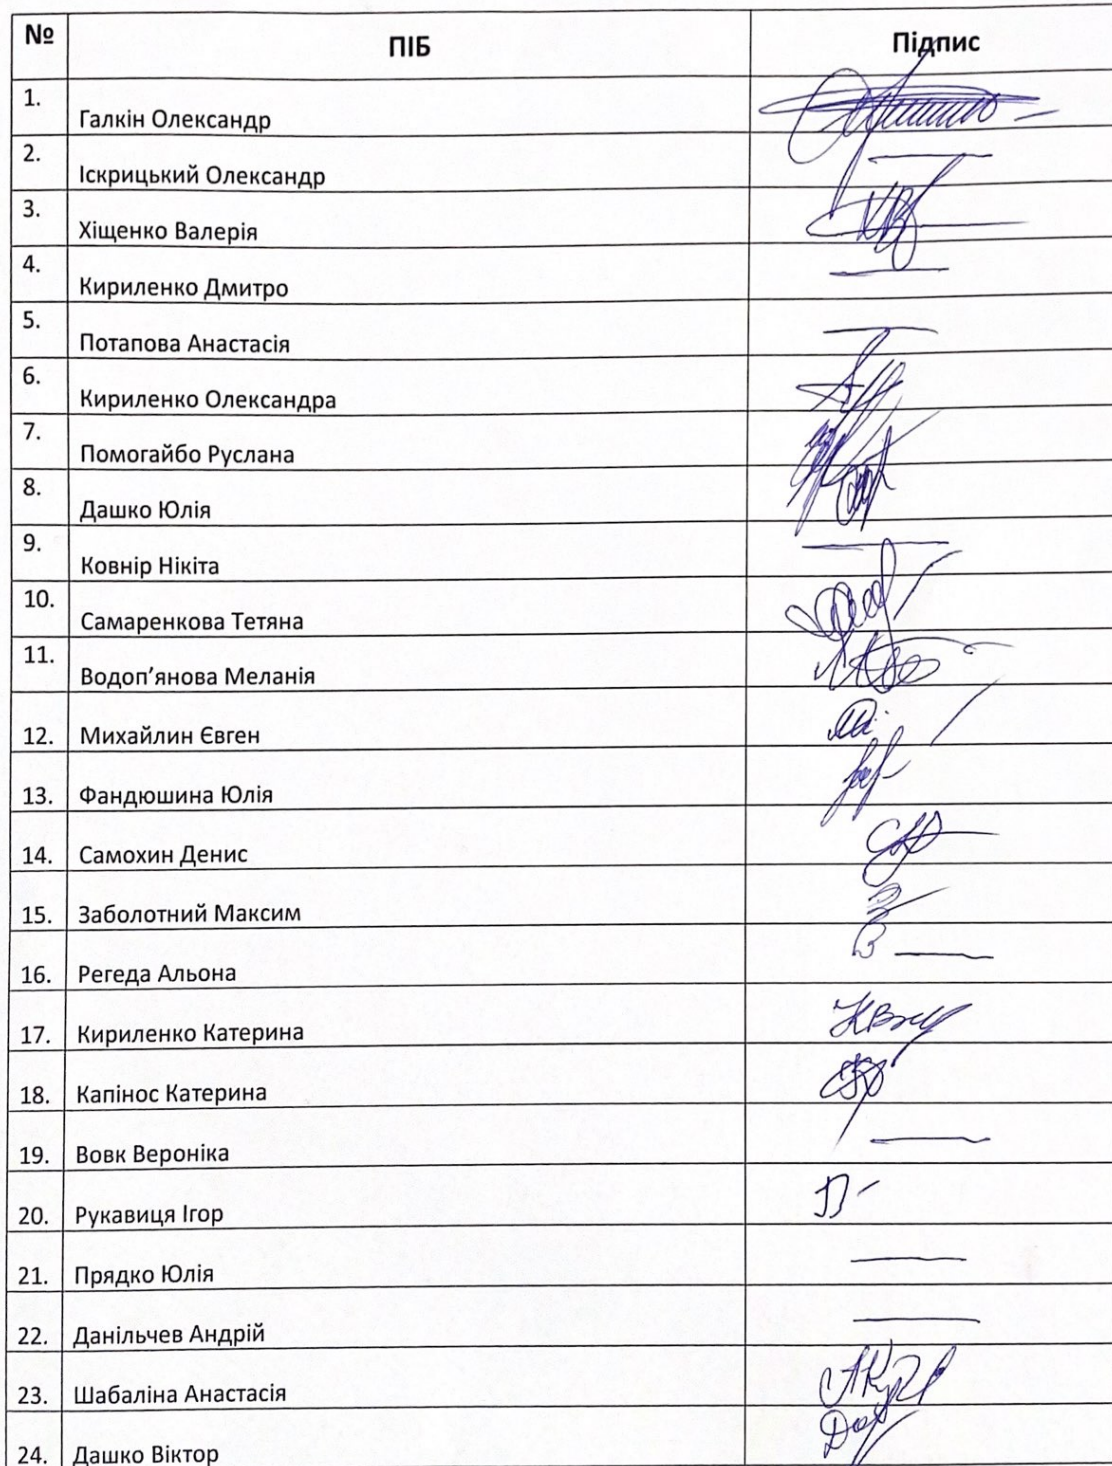 № ПІБ Підпис
1. Галкін Олександр
2. Іскрицький Олександр
3. Хіщенко Валерія
4. Кириленко Дмитро
5. Потапова Анастасія
6. Кириленко Олександра
7. Помогайбо Руслана
8. Дашко Юлія
9. Ковнір Нікіта
10. Самаренкова Тетяна
11. Водоп’янова Меланія
12. Михайлин Євген
13. Фандюшина Юлія
14. Самохин Денис
15. Заболотний Максим
16. Регеда Альона
17. Кириленко Катерина
18. Капінос Катерина
19. Вовк Вероніка
20. Рукавиця Ігор
21. Прядко Юлія
22. Данільчев Андрій
23. Шабаліна Анастасія
24. Дашко Віктор